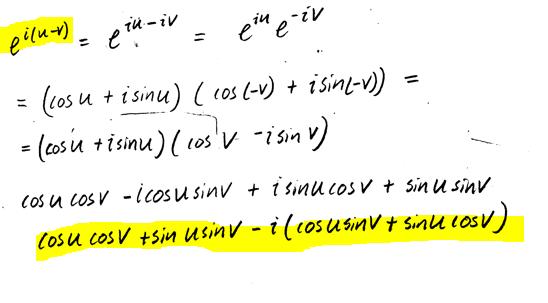 e^{i(u-v)} = e^{iu-iv} = e^{iu} e^{-iv}
= (cos u + i sin u) (cos(-v) + i sin(-v)) =
= (cos u + i sin u) (cos v - i sin v)
cos u cos v - i cos u sin v + i sin u cos v + sin u sin v
cos u cos v + sin u sin v - i (cos u sin v + sin u cos v)